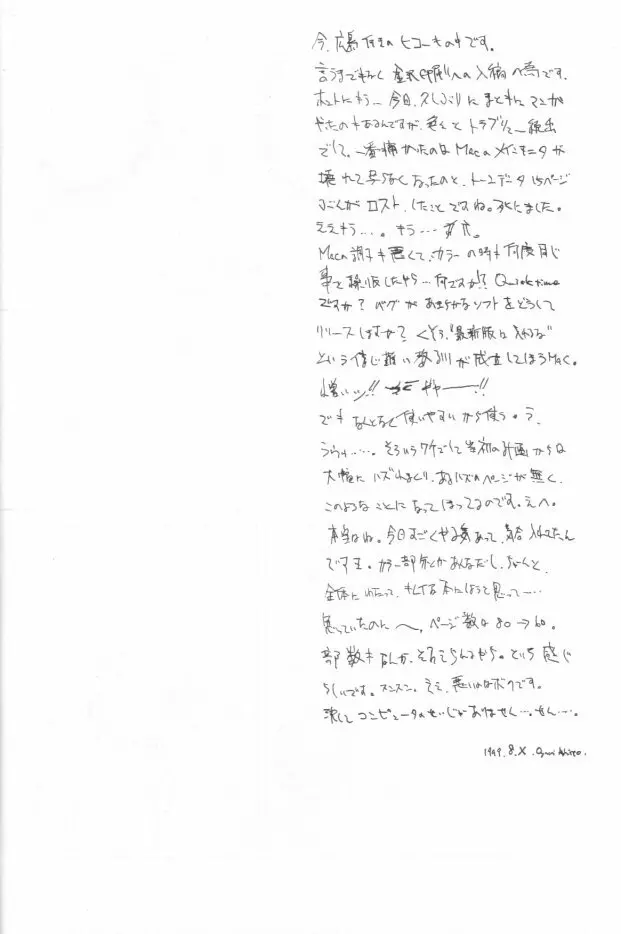 今、広島行きのヒコーキの中です。
言うまでもなく 金沢印刷への入稿の為です。
ホントにもう… 今日、久しぶりに まともに マンガ
やったのもあるんですが、色々と トラブル 続出
でして。一番痛かったのは Mac メインモニタが
壊れて 見えなくなったのと、トーンデータ 15ページ
ぶんが ロスト したこと ですね。死にました。
ええもう…。 もう…
Mac 調子も悪くて、カラーの時も 何度同じ
事を 繰り返したやら… 何ですか!? Quick time
ですか? バグが あきらかなソフトを どうして
リリース しますか? くそう、"最新版は 入れるな"
という 信じ難い 教訓が 成立してしまう Mac。
憎いッ!! ギャーー!!
でも なんとなく 使いやすいから使う。う、
ううっ……。そういうワケでして 当初の計画からは
大幅に ハズれまくり、あるハズの ページが 無く、
このようなことに なって しまってるのです。えへ。
本当はね。今日すごく やる気あって、気合 入れてたん
ですよ。カラー部分とか あんなだし、ちゃんと、
全体に わたって、 本にしようと 思って…
思っていたのに 〜、ページ数は 80 → 60。
部数も なんか、 という 感じ
らしいです。スンスン。ええ、悪いのはボクです。
決して コンピュータのせいじゃ ありません…、せん…。
1999. 8. X